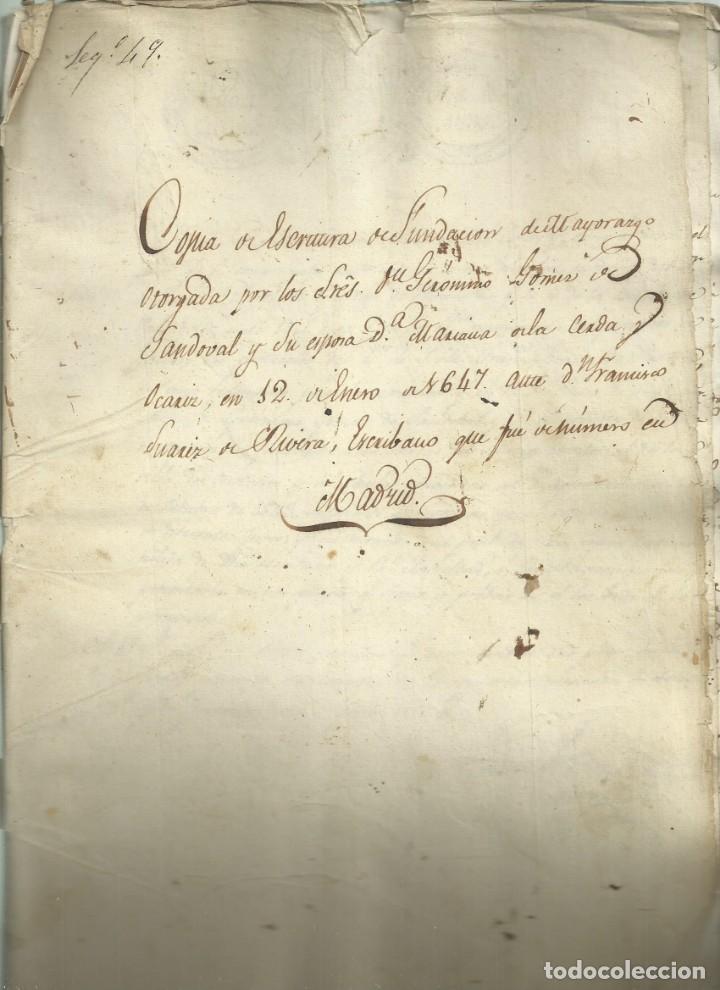 Leg.º 49.
Copia de Escritura de Fundacion de Mayorazgo
otorgada por los Sres. Dn. Gerónimo Gomez de
Sandoval y su esposa D.ª Mariana de la Cerda y
Ocariz, en 12. de Enero de 1647. ante D.n Francisco
Suarez de Rivera, Escribano que fué de número en
Madrid.
todocoleccion.net